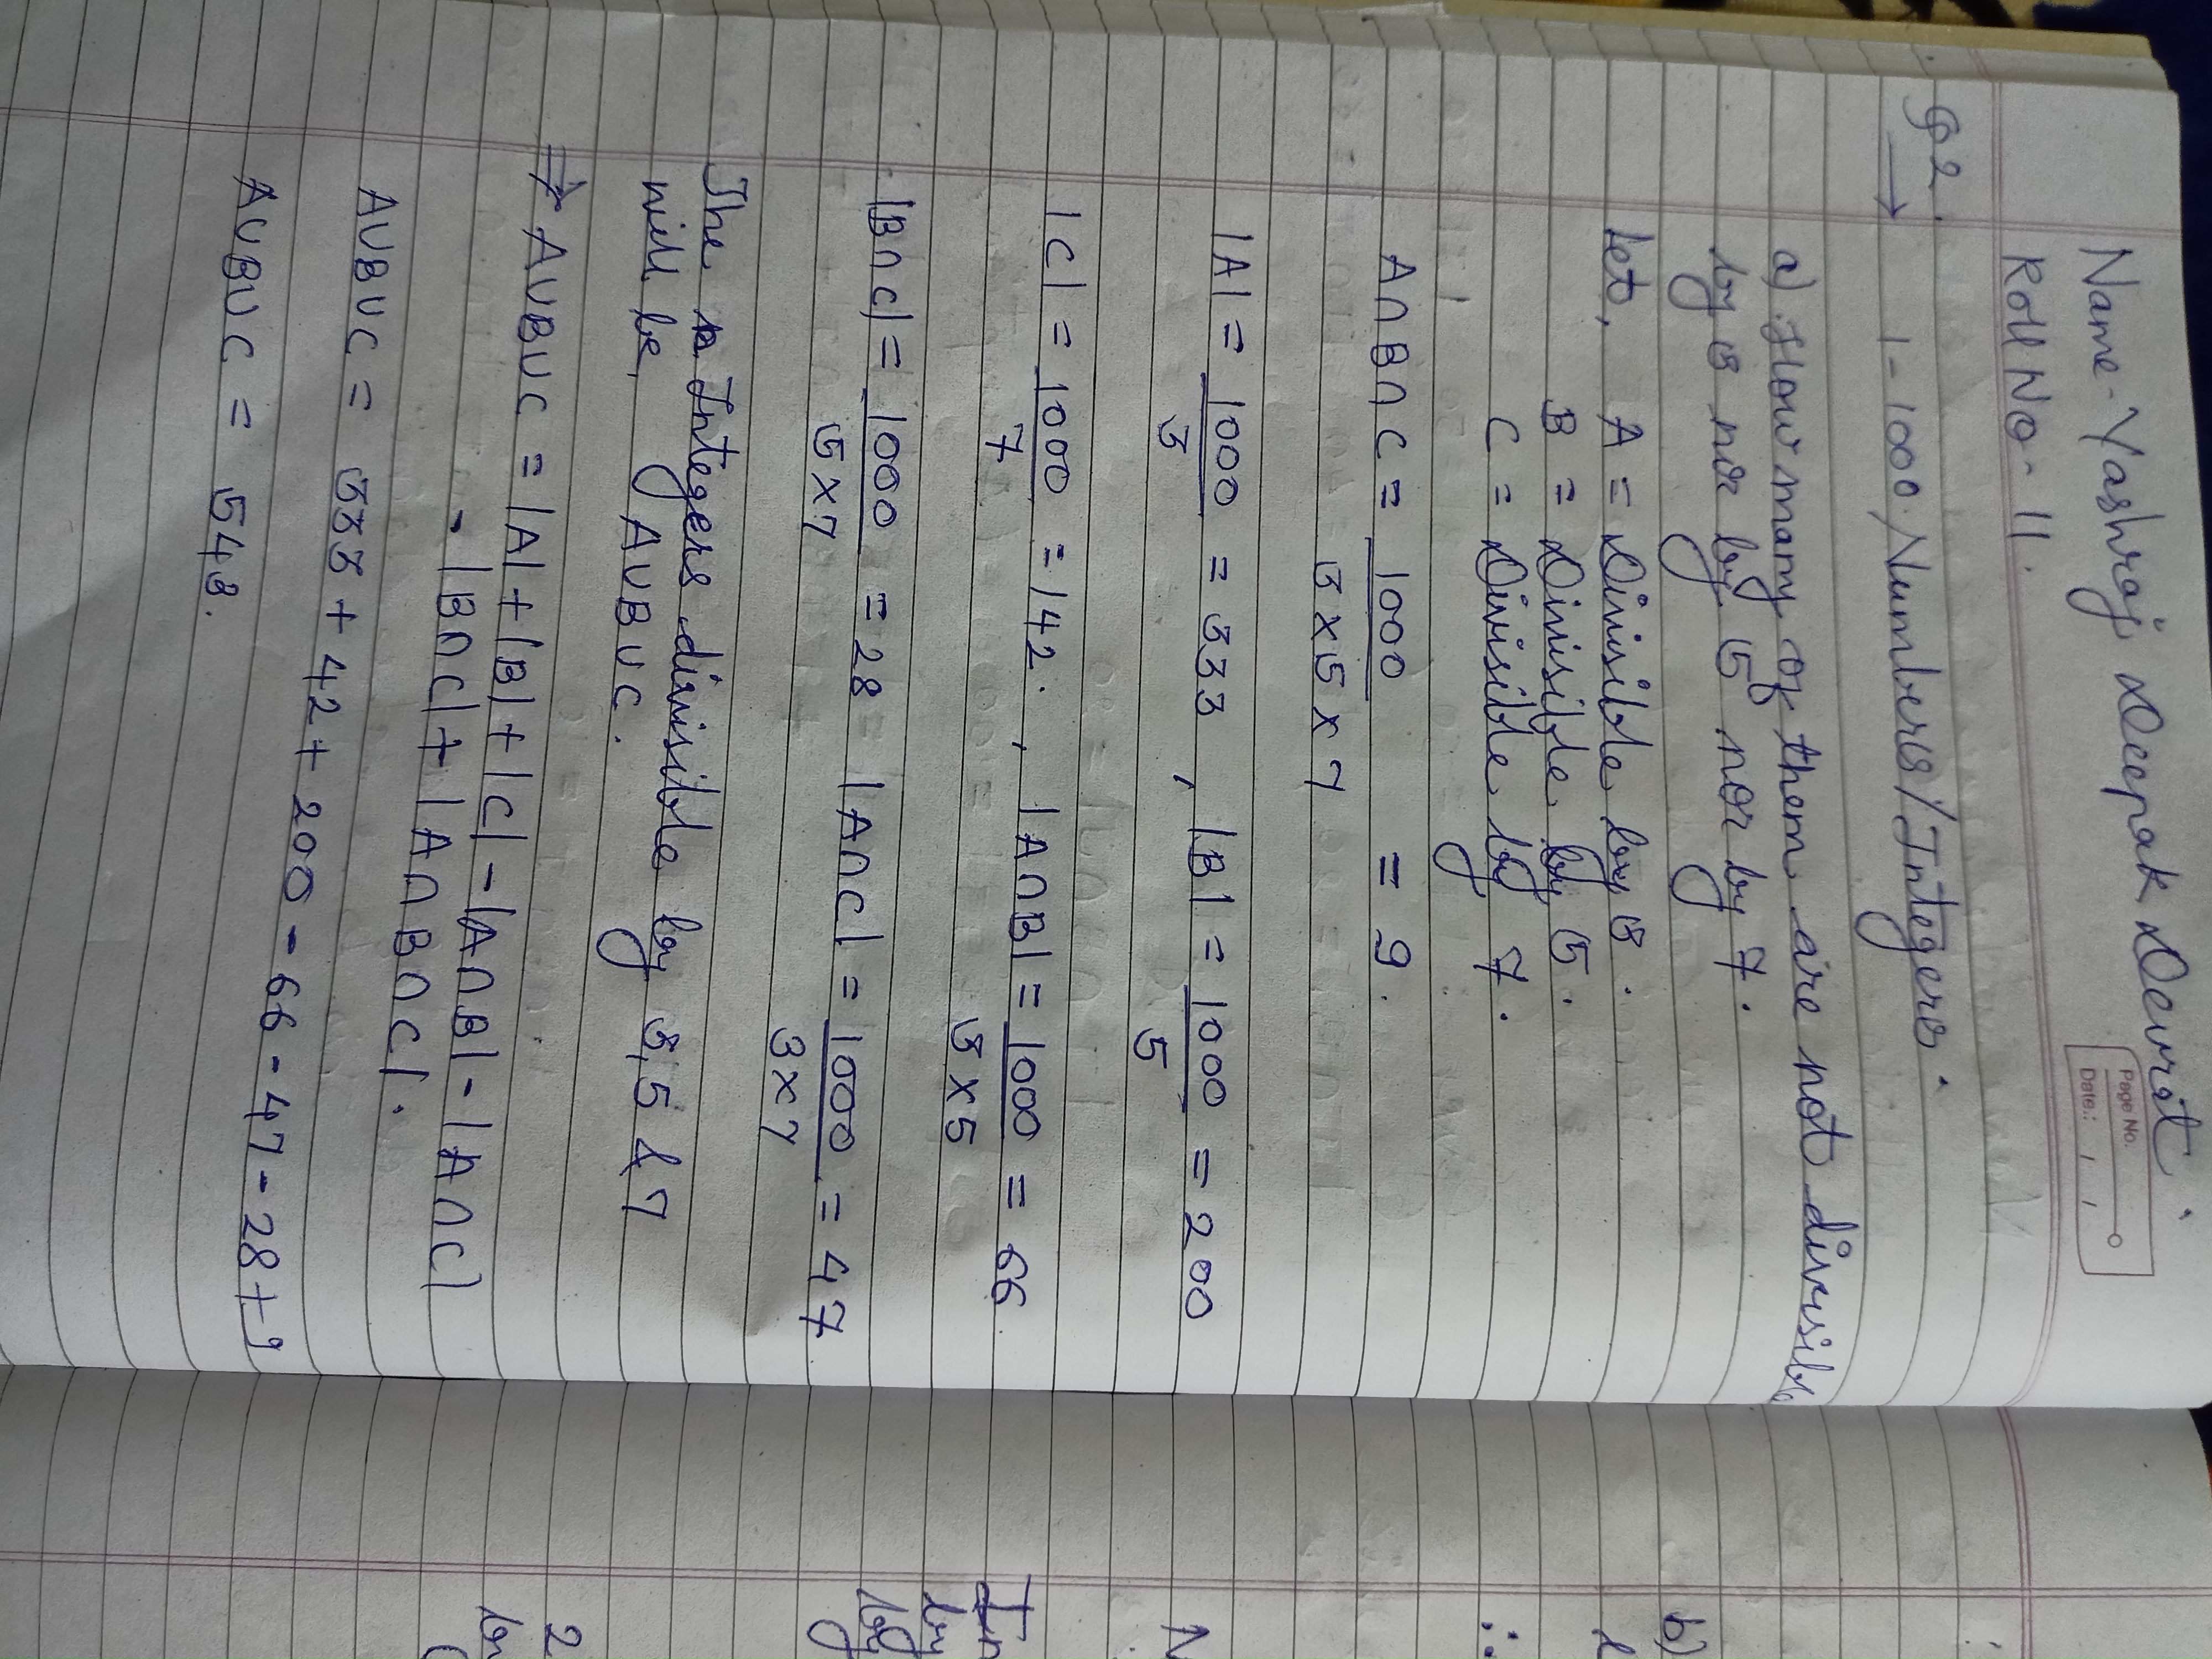 Name - Yashraj Deepak Devrat.
Page No.
Date.: / /
Roll No - 11.
Q2.
→ 1 - 1000. Numbers/Integers.
a) How many of them are not divisible
by 3 nor by 5 nor by 7.
Let, A = Divisible by 3.
B = Divisible by 5.
C = Divisible by 7.
A∩B∩C = 1000 / 3×5×7 = 9.
|A| = 1000 / 3 = 333 , |B| = 1000 / 5 = 200
|C| = 1000 / 7 = 142. , |A∩B| = 1000 / 3×5 = 66.
|B∩C| = 1000 / 5×7 = 28 |A∩C| = 1000 / 3×7 = 47.
The Integers divisible by 3, 5 & 7
will be, A∪B∪C.
⇒ A∪B∪C = |A| + |B| + |C| - |A∩B| - |A∩C|
- |B∩C| + |A∩B∩C|.
A∪B∪C = 333 + 42 + 200 - 66 - 47 - 28 + 9
A∪B∪C = 543.
b)
∴
N
In
by
by
2